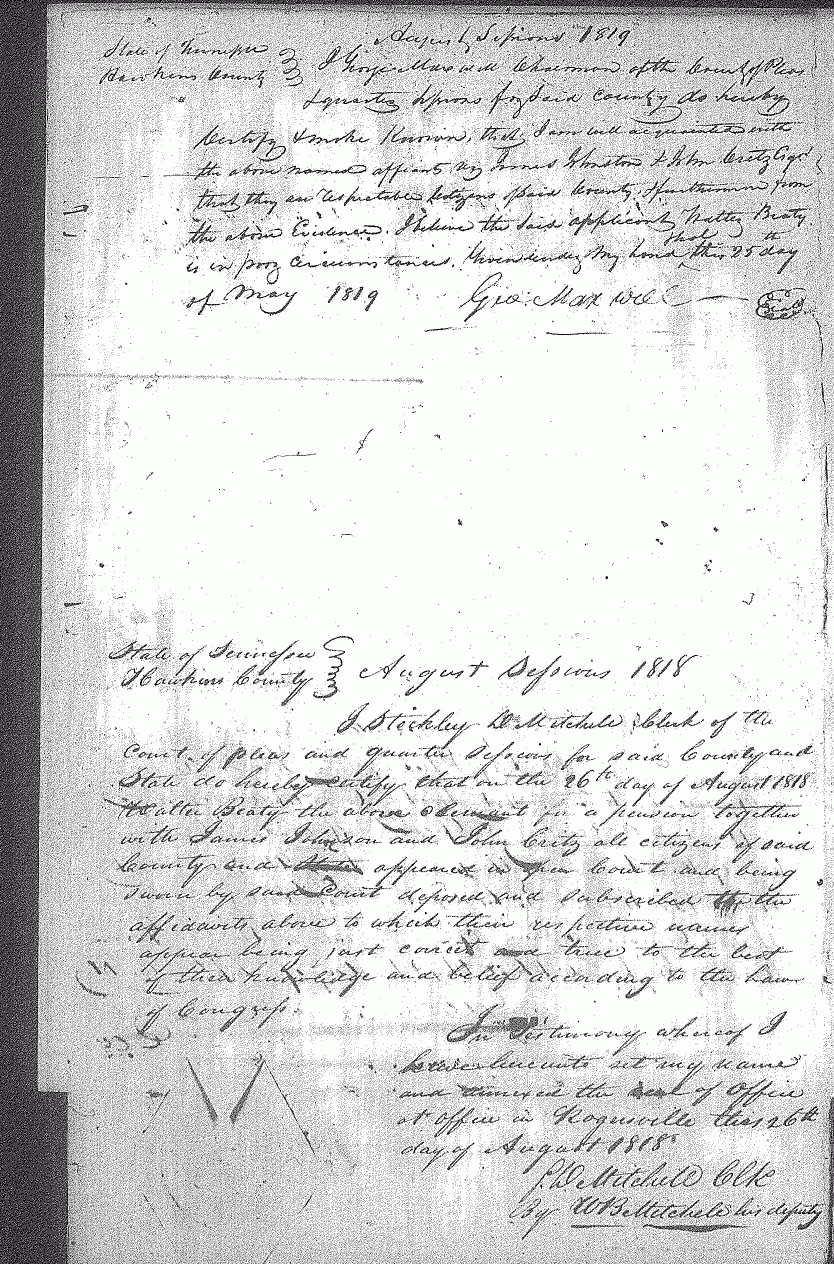 August Sessions 1819
State of Tennessee
Hawkins County
I George Maxwell Chairman of the Court of Pleas
& quarter Sessions for Said County do hereby
Certify & make Known, that I am well acquainted with
the above named affiants viz James Johnston & John Critz Esqr
that they are respectable Citizens of said County, & furthermore from
the above Evidence. I believe the Said applicant Walter Beaty
is in poor circumstances. Given under My hand & seal this 25th day
of May 1819 Geo. Maxwell Seal
State of Tennessee
Hawkins County August Sessions 1818
I Stokley D Mitchell Clerk of the
Court of pleas and quarter Sessions for said County and
State do hereby certify that on the 26th day of August 1818
Walter Beaty the above claimant for a pension together
with James Johnson and John Critz all citizens of said
County and appeared in open Court and being
sworn by said Court deposed and subscribed the
affidavits above to which their respective names
appear being just correct and true to the best
of their knowledge and belief according to the Law
of Congress.
In Testimony whereof I
have hereunto set my name
and annexed the seal of Office
at office in Rogersville this 26th
day of August 1818
S D Mitchell Clk
By W B Mitchell his deputy